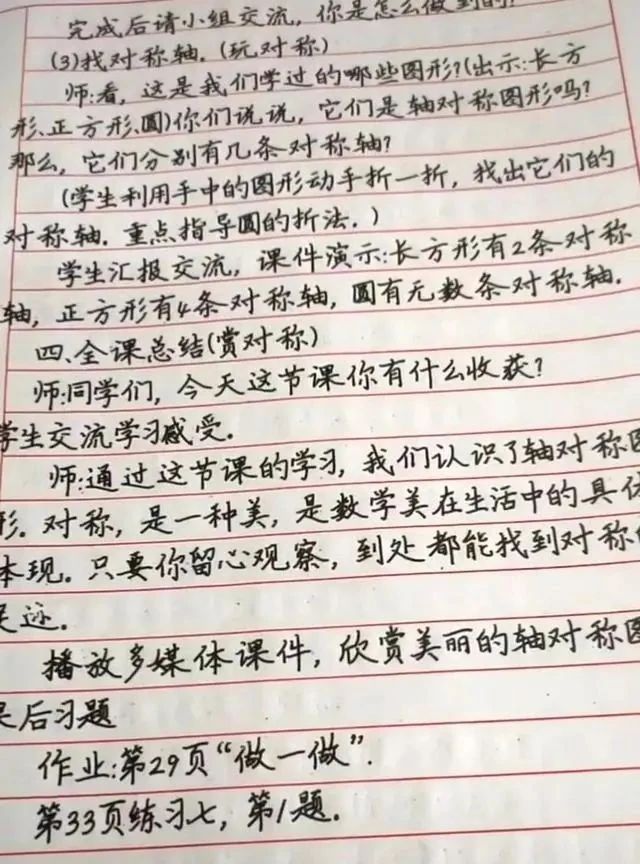 完成后请小组交流，你是怎么做到的？
(3)找对称轴.(玩对称)
师:看，这是我们学过的哪些图形?(出示:长方
形、正方形、圆)你们说说，它们是轴对称图形吗?
那么，它们分别有几条对称轴?
(学生利用手中的图形动手折一折，找出它们的
对称轴.重点指导圆的折法.)
学生汇报交流，课件演示:长方形有2条对称
轴，正方形有4条对称轴，圆有无数条对称轴.
四、全课总结(赏对称)
师:同学们，今天这节课你有什么收获?
学生交流学习感受.
师:通过这节课的学习，我们认识了轴对称图
形.对称，是一种美，是数学美在生活中的具体
体现.只要你留心观察，到处都能找到对称的
足迹.
播放多媒体课件，欣赏美丽的轴对称图
课后习题
作业:第29页“做一做”.
第33页练习七，第1题.